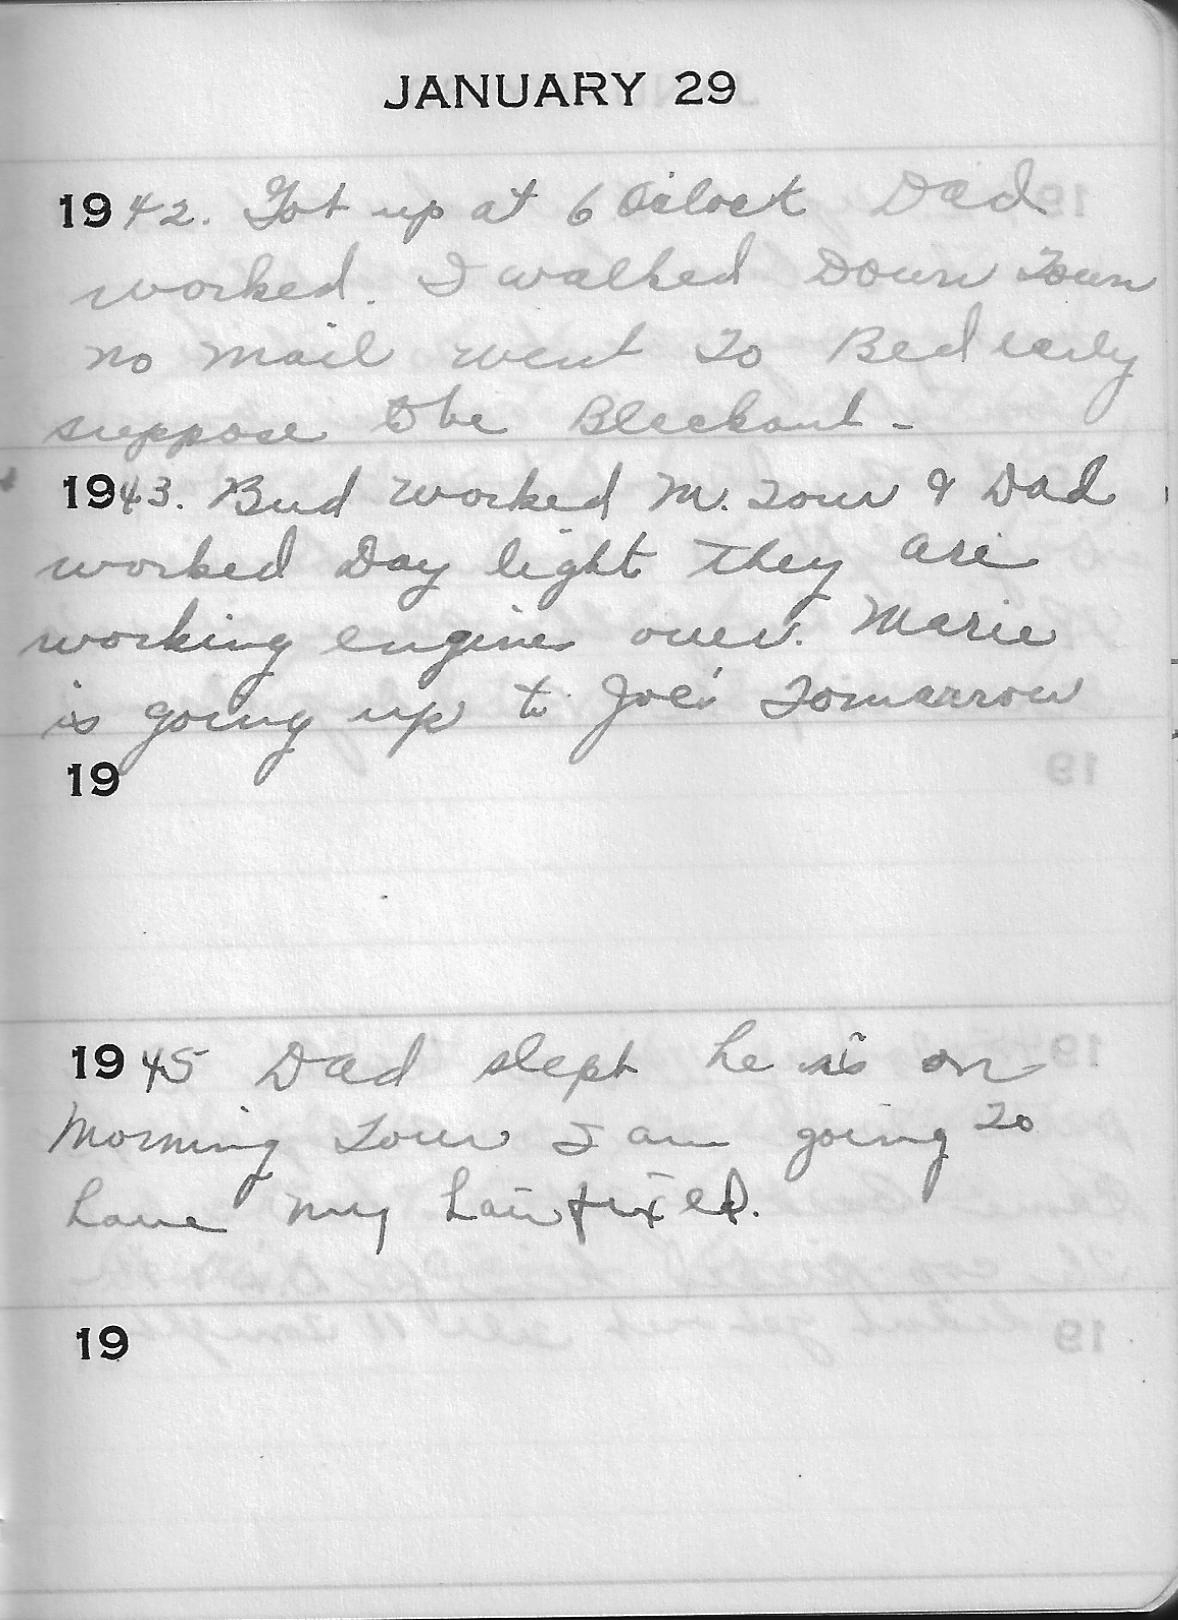 JANUARY 29
1942. Got up at 6 O'clock Dad
worked. I walked Down Town
no mail went To Bed early
suppose the Blackout -
1943. Bud worked M. Tour & Dad
worked Day light They are
working engines over. Marie
is going up to Joe's Tomarrow
19
1945 Dad slept he is on
Morning Tour I am going To
have my hair fixed.
19